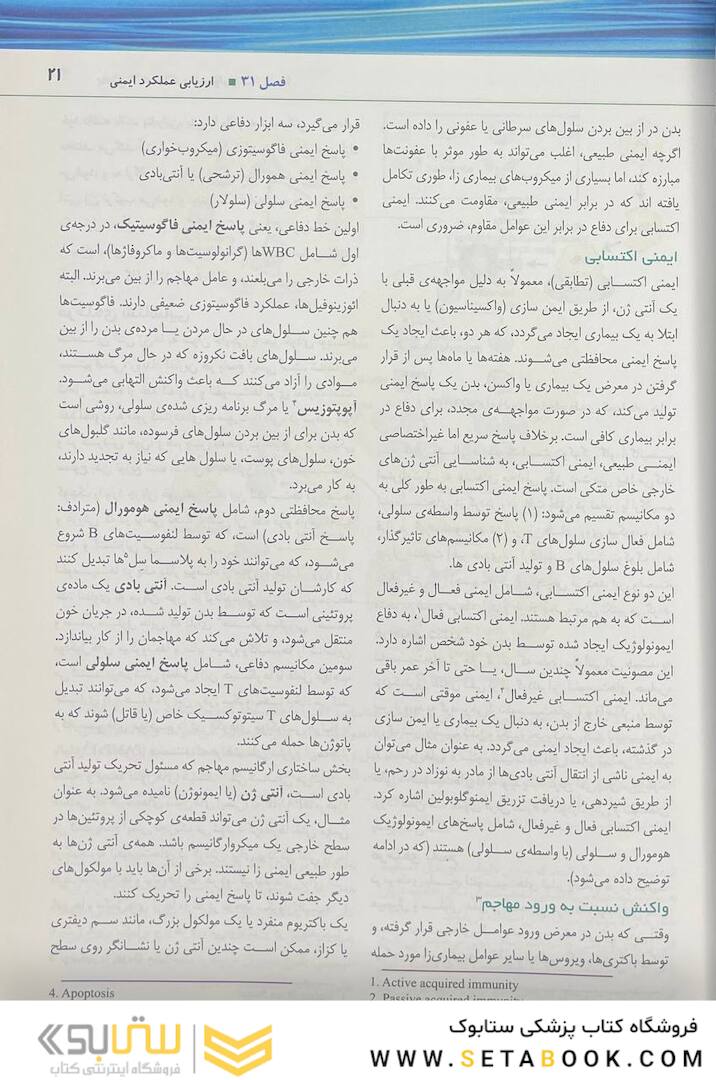 فصل ۳۱ ■ ارزیابی عملکرد ایمنی
۲۱
بدن در از بین بردن سلول‌های سرطانی یا عفونی را داده است.
اگرچه ایمنی طبیعی، اغلب می‌تواند به طور موثر با عفونت‌ها
مبارزه کند، اما بسیاری از میکروب‌های بیماری زا، طوری تکامل
یافته اند که در برابر ایمنی طبیعی، مقاومت می‌کنند. ایمنی
اکتسابی برای دفاع در برابر این عوامل مقاوم، ضروری است.
ایمنی اکتسابی
ایمنی اکتسـابی (تطابقی)، معمولاً به دلیل مواجهه‌ی قبلی با
یک آنتی ژن، از طریق ایمن سازی (واکسیناسیون) یا به دنبال
ابتلا به یک بیماری ایجاد می‌گردد، که هر دو، باعث ایجاد یک
پاسخ ایمنی محافظتی می‌شـوند. هفته‌ها یا ماه‌ها پس از قرار
گرفتن در معرض یک بیماری یا واکسن، بدن یک پاسخ ایمنی
تولید می‌کند، که در صورت مواجهـه‌ی مجدد، برای دفاع در
برابر بیماری کافی است. برخلاف پاسخ سریع اما غیراختصاصی
ایمنـی طبیعی، ایمنی اکتسـابی، به شناسایی آنتی ژن‌های
خارجی خاص متکی است. پاسخ ایمنی اکتسابی به طور کلی به
دو مکانیسم تقسیم می‌شود: (۱) پاسخ توسط واسطه‌ی سلولی،
شامل فعال سازی سلول‌های T، و (۲) مکانیسم‌های تاثیرگذار،
شامل بلوغ سلول‌های B و تولید آنتی بادی ها.
این دو نوع ایمنی اکتسـابی، شـامل ایمنی فعـال و غیرفعال
اسـت که به هم مرتبط هستند. ایمنی اکتسابی فعال۱، به دفاع
ایمونولوژیک ایجاد شده توسـط بدن خود شخص اشاره دارد.
این مصونیت معمولاً چندین سـال، یـا حتی تا آخر عمر باقی
می‌ماند. ایمنی اکتسـابی غیرفعال۲، ایمنی موقتی است که
توسط منبعی خارج از بدن، به دنبال یک بیماری یا ایمن سازی
در گذشته، باعث ایجاد ایمنی می‌گردد. به عنوان مثال می‌توان
به ایمنی ناشی از انتقال آنتی بادی‌ها از مادر به نوزاد در رحم، یا
از طریق شیردهی، یا دریافت تزریق ایمنوگلوبولین اشاره کرد.
ایمنی اکتسابی فعال و غیرفعال، شامل پاسخ‌های ایمونولوژیک
هومورال و سـلولی (با واسطه‌ی سـلولی) هستند (که در ادامه
توضیح داده می‌شود).
واکنش نسبت به ورود مهاجم۳
وقتـی که بدن در معرض ورود عوامـل خارجی قرار گرفته، و
توسط باکتری‌ها، ویروس‌ها یا سایر عوامل بیماری‌زا مورد حمله
1. Active acquired immunity
2. Passive acquired immunity
قرار می‌گیرد، سه ابزار دفاعی دارد:
• پاسخ ایمنی فاگوسیتوزی (میکروب‌خواری)
• پاسخ ایمنی همورال (ترشحی) یا آنتی‌بادی
• پاسخ ایمنی سلولی (سلولار)
اولین خط دفاعی، یعنی پاسخ ایمنی فاگوسیتیک، در درجه‌ی
اول شـامل WBCها (گرانولوسیت‌ها و ماکروفاژها)، است که
ذرات خارجی را می‌بلعند، و عامل مهاجم را از بین می‌برند. البته
ائوزینوفیل‌ها، عملکرد فاگوسیتوزی ضعیفی دارند. فاگوسیت‌ها
هم چنین سـلول‌های در حال مردن یـا مرده‌ی بدن را از بین
می‌برند. سـلول‌های بافت نکروزه که در حال مرگ هسـتند،
مـوادی را آزاد می‌کنند کـه باعث واکنش التهابی می‌شـود.
آپوپتوزیس۴ یا مرگ برنامه ریزی شده‌ی سلولی، روشی است
که بدن برای از بین بردن سلول‌های فرسوده، مانند گلبول‌های
خون، سلول‌های پوست، یا سلول هایی که نیاز به تجدید دارند،
به کار می‌برد.
پاسخ محافظتی دوم، شامل پاسخ ایمنی هومورال (مترادف:
پاسـخ آنتی بادی) است، که توسط لنفوسـیت‌های B شروع
می‌شـود، که می‌توانند خود را به پلاسـما سِل۵ها تبدیل کنند
که کارشان تولید آنتی بادی است. آنتی بادی یک ماده‌ی
پروتئینی است که توسـط بدن تولید شـده، در جریان خون
منتقل می‌شود، و تلاش می‌کند که مهاجمان را از کار بیاندازد.
سومین مکانیسم دفاعی، شـامل پاسخ ایمنی سلولی است،
که توسط لنفوسیت‌های T ایجاد می‌شود، که می‌توانند تبدیل
به سـلول‌های T سیتوتوکسـیک خاص (یا قاتل) شوند که به
پاتوژن‌ها حمله می‌کنند.
بخش ساختاری ارگانیسم مهاجم که مسئول تحریک تولید آنتی
بادی اسـت، آنتی ژن (یا ایمونوژن) نامیده می‌شود. به عنوان
مثـال، یک آنتی ژن می‌تواند قطعه‌ی کوچکی از پروتئین‌ها در
سطح خارجی یک میکروارگانیسم باشد. همه‌ی آنتی ژن‌ها به
طور طبیعی ایمنی زا نیستند. برخی از آن‌ها باید با مولکول‌های
دیگر جفت شوند، تا پاسخ ایمنی را تحریک کنند.
یک باکتریوم منفرد یا یک مولکول بزرگ، مانند سـم دیفتری
یا کزاز، ممکن است چندین آنتی ژن یا نشـانگر روی سطح
4. Apoptosis
فروشگاه کتاب پزشکی ستابوک
WWW.SETABOOK.COM
ستابوک
فروشگاه اینترنتی کتاب